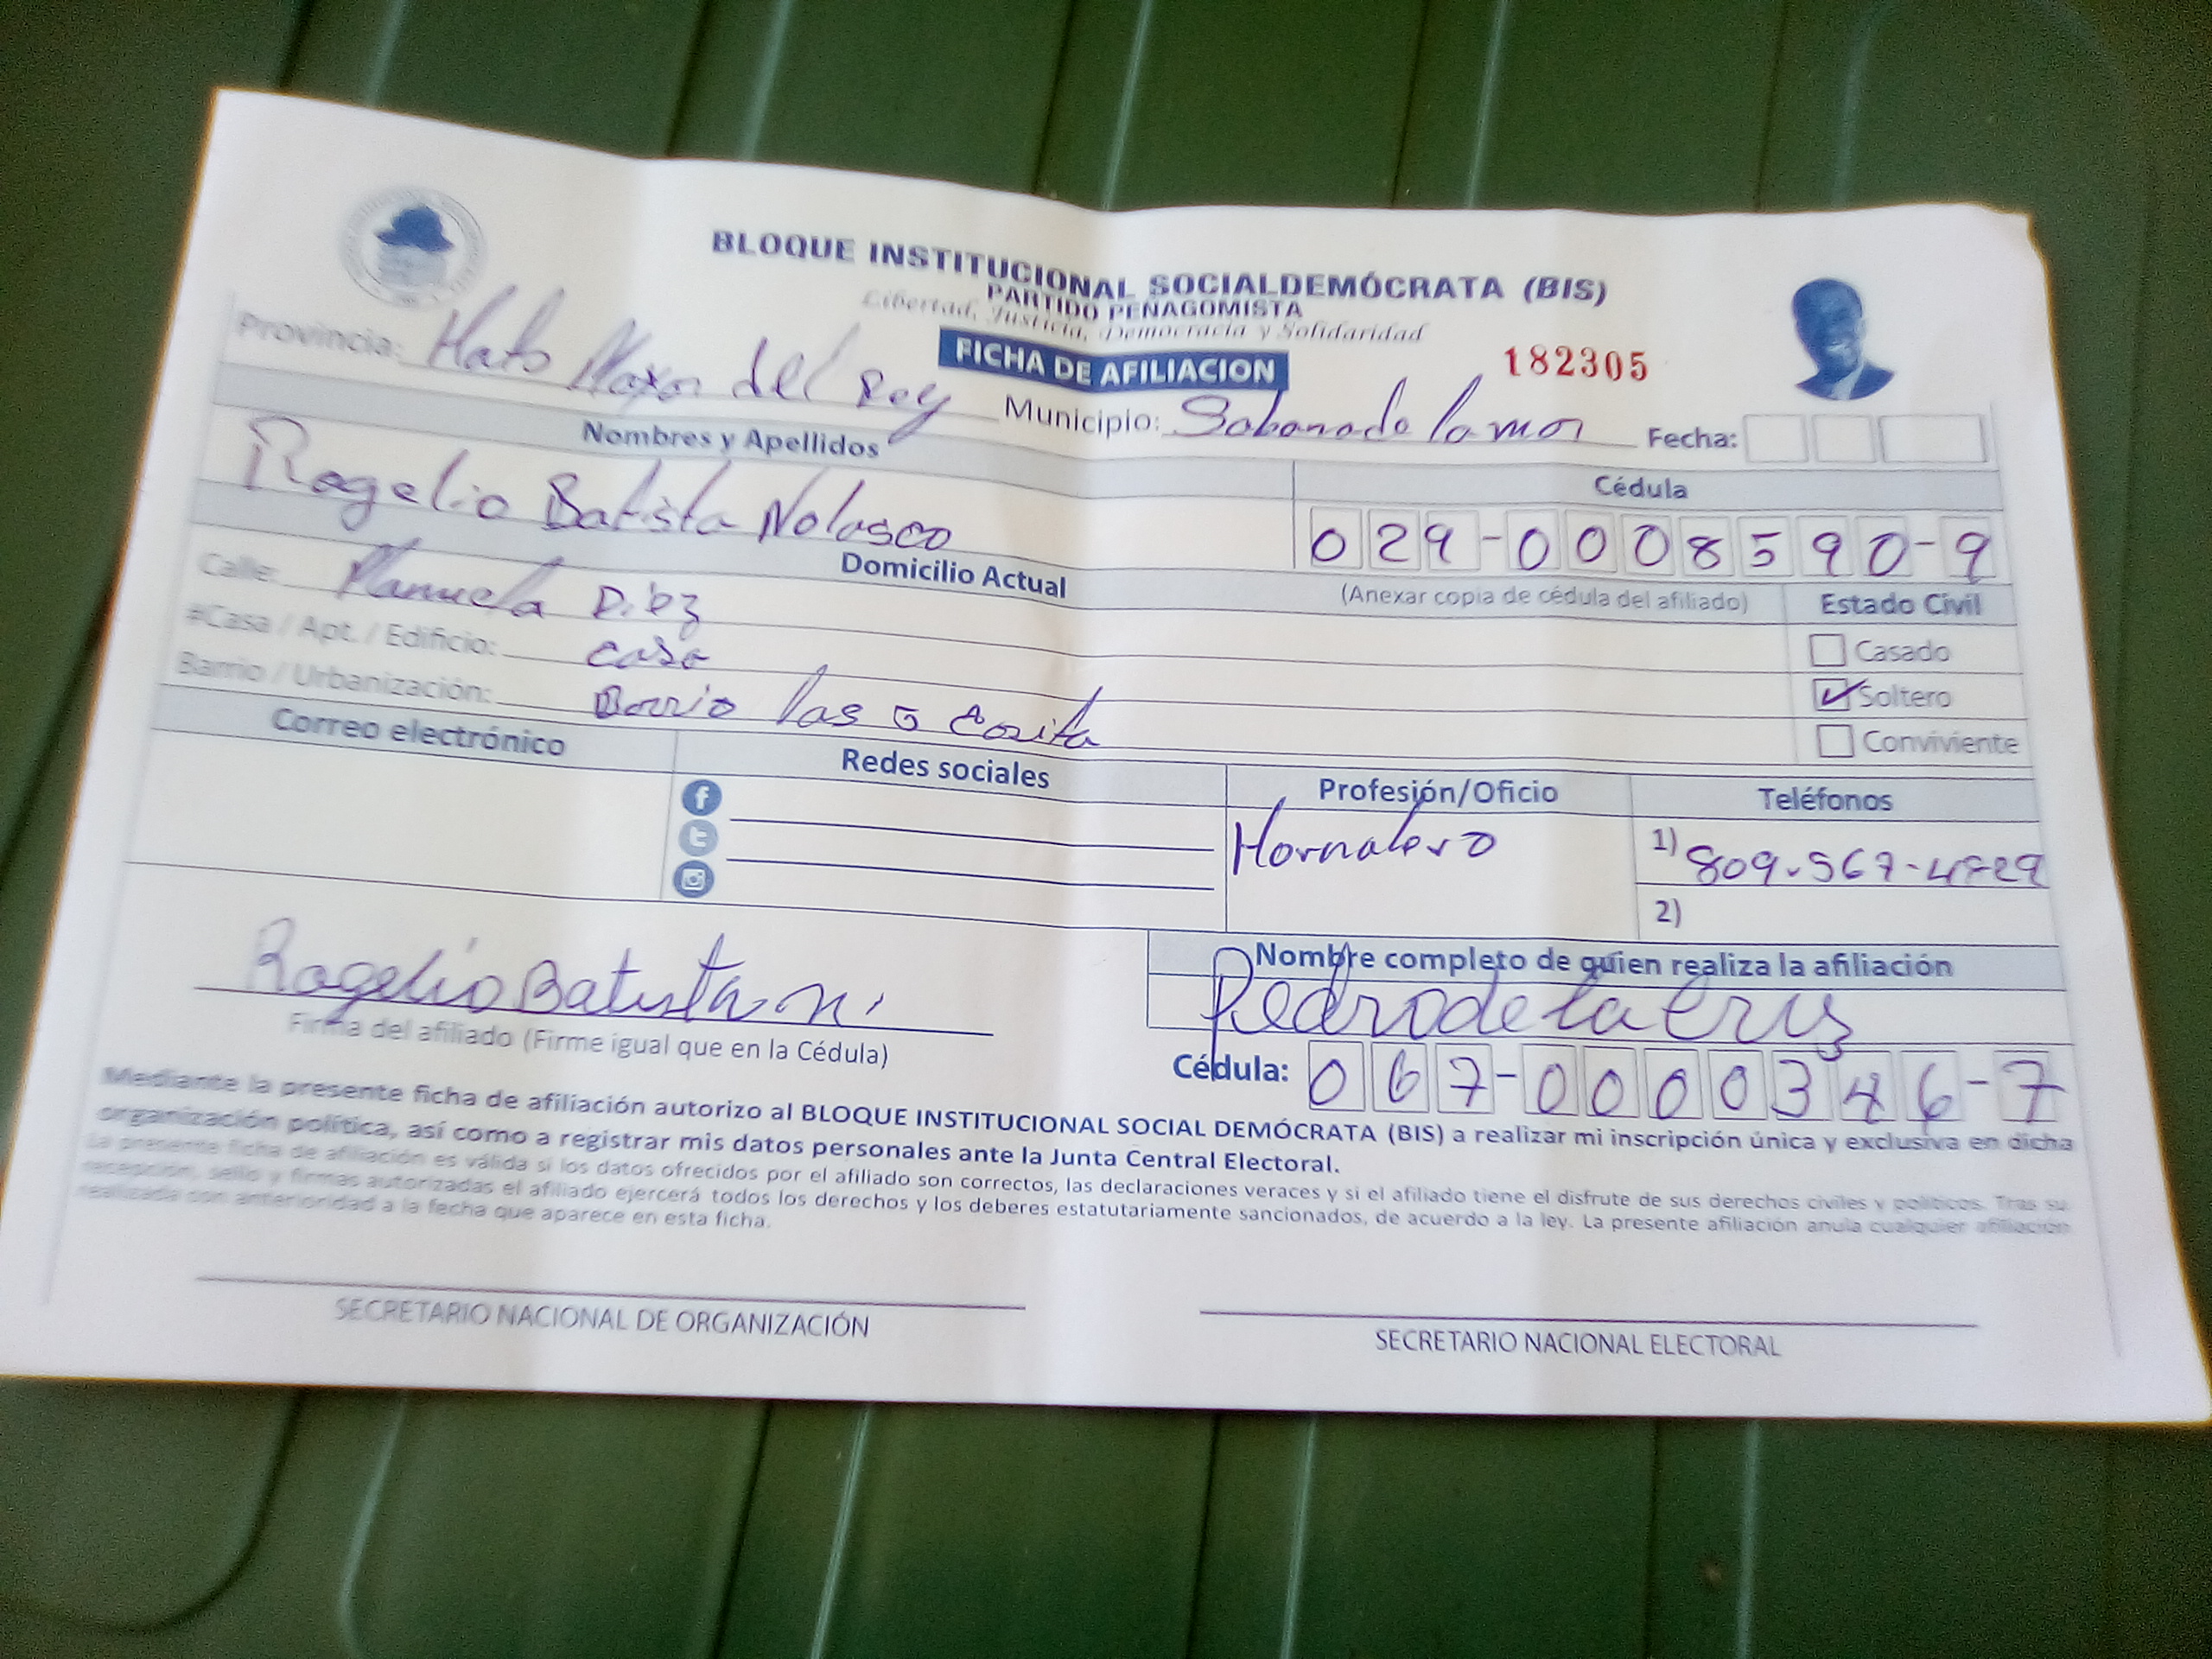 BLOQUE INSTITUCIONAL SOCIALDEMÓCRATA (BIS)
PARTIDO PEÑAGOMISTA
Libertad, Justicia, Democracia y Solidaridad
FICHA DE AFILIACION
182305
Provincia: Hato Mayor del Rey Municipio: Sabana de la mar Fecha:
Nombres y Apellidos
Cédula
Rogelio Batista Nolasco
029-0008590-9
Domicilio Actual
(Anexar copia de cédula del afiliado)
Estado Civil
Calle: Manuela Diez
Casado
#Casa / Apt. / Edificio: casa
Soltero
Barrio / Urbanización: Barrio las 5 Casita
Conviviente
Correo electrónico
Redes sociales
Profesión/Oficio
Teléfonos
Hornalero
1) 809-567-4729
2)
Rogelio Batista N.
Firma del afiliado (Firme igual que en la Cédula)
Nombre completo de quien realiza la afiliación
Pedro de la Crus
Cédula: 067-0000346-7
Mediante la presente ficha de afiliación autorizo al BLOQUE INSTITUCIONAL SOCIAL DEMÓCRATA (BIS) a realizar mi inscripción única y exclusiva en dicha
organización política, así como a registrar mis datos personales ante la Junta Central Electoral.
La presente ficha de afiliación es válida si los datos ofrecidos por el afiliado son correctos, las declaraciones veraces y si el afiliado tiene el disfrute de sus derechos civiles y políticos. Tras su
recepción, sello y firmas autorizadas el afiliado ejercerá todos los derechos y los deberes estatutariamente sancionados, de acuerdo a la ley. La presente afiliación anula cualquier afiliación
realizada con anterioridad a la fecha que aparece en esta ficha.
SECRETARIO NACIONAL DE ORGANIZACIÓN
SECRETARIO NACIONAL ELECTORAL